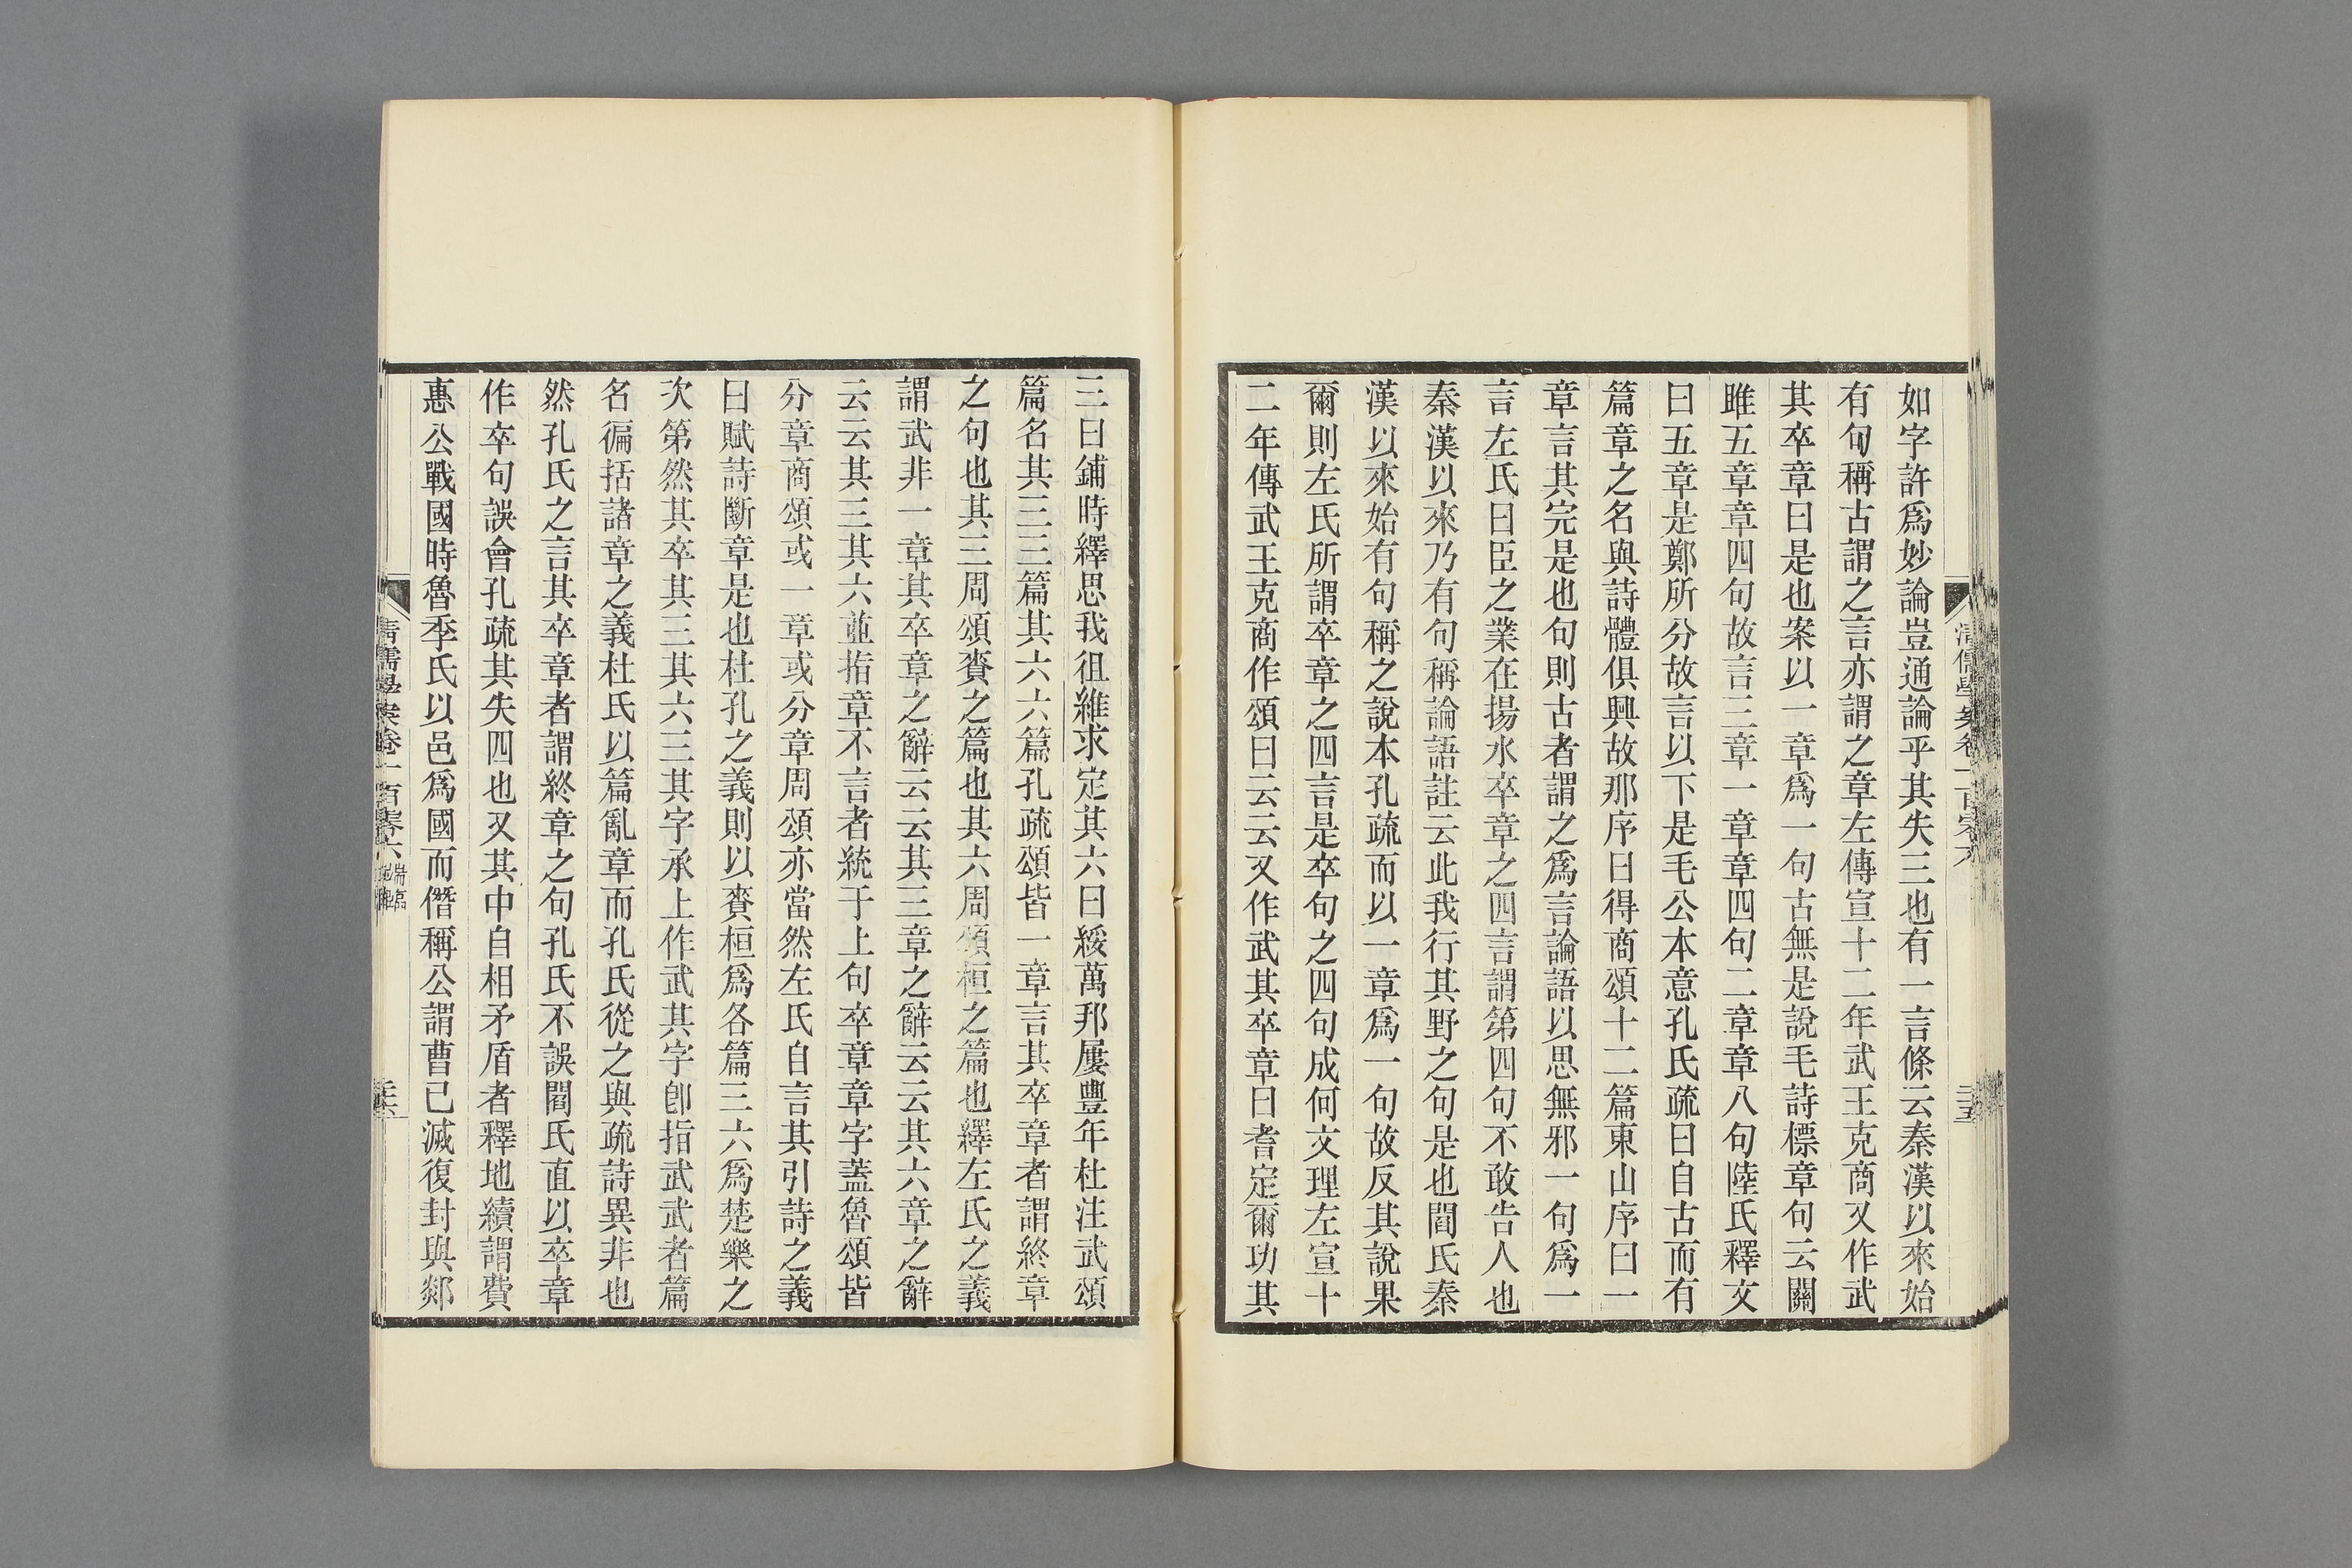 如字許爲妙論豈通論乎其失三也有一言條云秦漢以來始
有句稱古謂之言亦謂之章左傳宣十二年武王克商又作武
其卒章曰是也案以一章爲一句古無是說毛詩標章句云關
雎五章章四句故言三章一章章四句二章章八句陸氏釋文
曰五章是鄭所分故言以下是毛公本意孔氏疏曰自古而有
篇章之名與詩體俱興故那序曰得商頌十二篇東山序曰一
章言其完是也句則古者謂之爲言論語以思無邪一句爲一
言左氏曰臣之業在揚水卒章之四言謂第四句不敢告人也
秦漢以來乃有句稱論語註云此我行其野之句是也閻氏秦
漢以來始有句稱之說本孔疏而以一章爲一句故反其說果
爾則左氏所謂卒章之四言是卒句之四句成何文理左宣十
二年傳武王克商作頌曰云云又作武其卒章曰耆定爾功其
三曰鋪時繹思我徂維求定其六曰綏萬邦屢豐年杜注武頌
篇名其三三篇其六六篇孔疏頌皆一章言其卒章者謂終章
之句也其三周頌賚之篇也其六周頌桓之篇也繹左氏之義
謂武非一章其卒章之辭云云其三章之辭云云其六章之辭
云云其三其六並指章不言者統于上句卒章章字蓋魯頌皆
分章商頌或一章或分章周頌亦當然左氏自言其引詩之義
曰賦詩斷章是也杜孔之義則以賚桓爲各篇三六爲楚樂之
次第然其卒其三其六三其字承上作武其字卽指武武者篇
名徧括諸章之義杜氏以篇亂章而孔氏從之與疏詩異非也
然孔氏之言其卒章者謂終章之句孔氏不誤閻氏直以卒章
作卒句誤會孔疏其失四也又其中自相矛盾者釋地續謂費
惠公戰國時魯季氏以邑爲國而僭稱公謂曹已滅復封與郯
清儒學案卷二百六